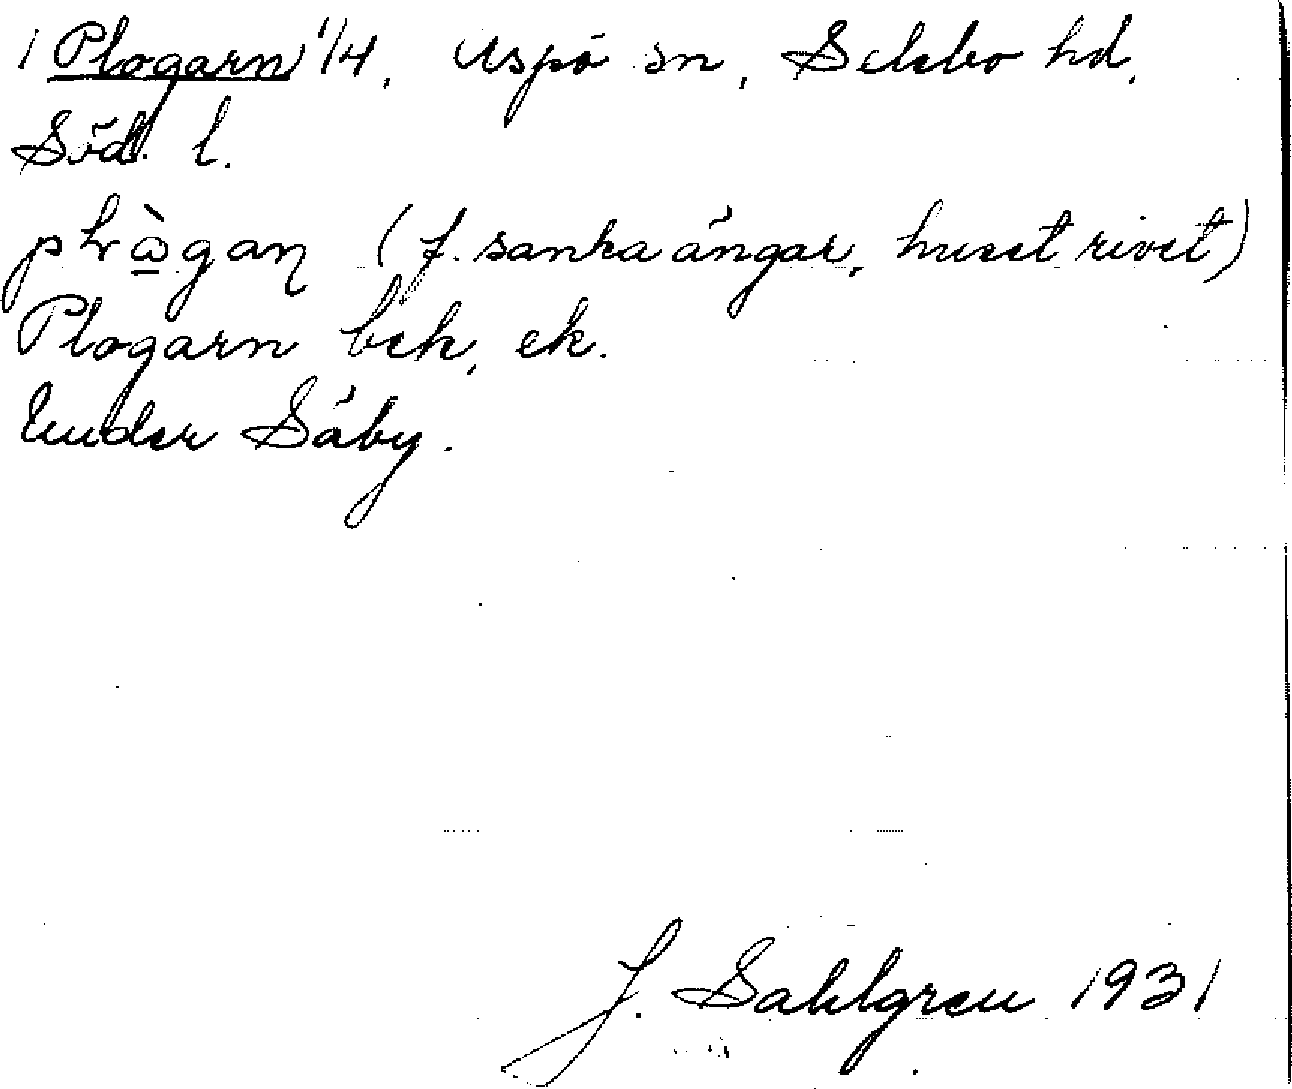 1 Plogarn 1/4, Aspö sn, Selebo hd,
Söd. l.
(f. sanka ängar, huset rivet)
Plogarn beb, ek.
under Säby.
J. Sahlgren 1931